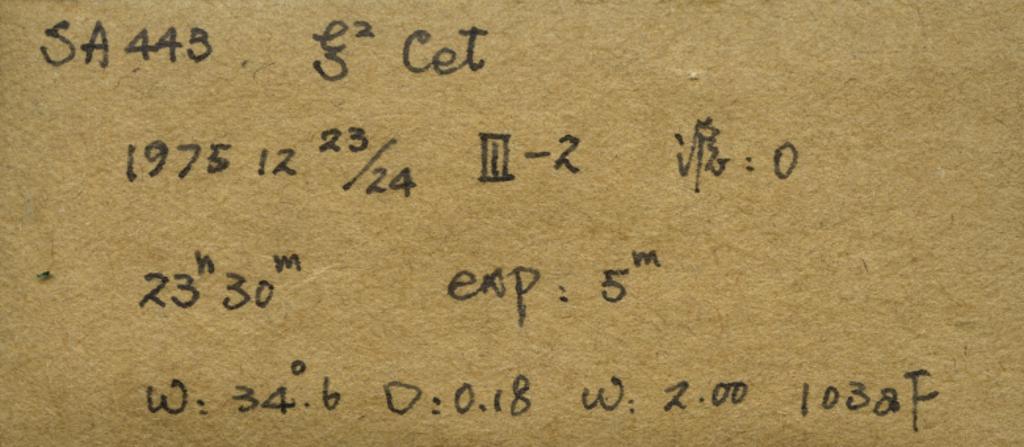 SA 443 ξ² Cet
1975 12 23/24 Ⅲ-2 滤: 0
23ʰ30ᵐ exp: 5ᵐ
W: 34°.6 D: 0.18 W: 2.00 103aF